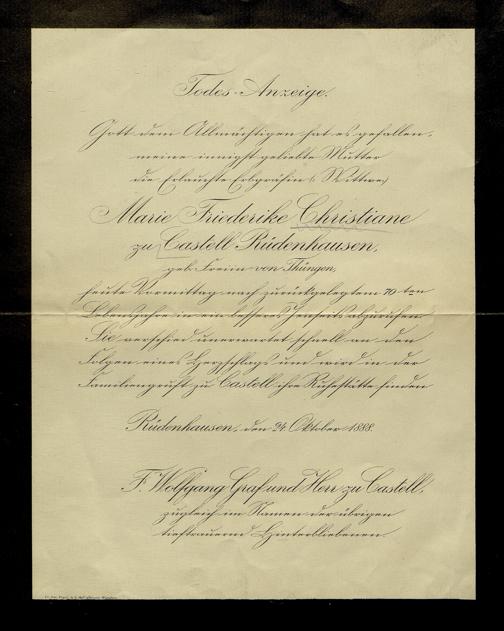 Todes-Anzeige.
Gott dem Allmächtigen hat es gefallen,
meine innigst geliebte Mutter
die Erlauchte Erbgräfin Wittwe
Marie Friederike Christiane
zu Castell-Rüdenhausen,
geb. Freiin von Thüngen,
heute Vormittag nach zurückgelegtem 70-ten
Lebensjahr in ein besseres Jenseits abzurufen.
Sie verschied unerwartet schnell an den
Folgen eines Herzschlags und wird in der
Familiengruft zu Castell ihre Ruhestätte finden
Rüdenhausen, den 24. Oktober 1888.
F. Wolfgang Graf und Herr zu Castell,
zugleich im Namen der übrigen
tieftrauernd Hinterbliebenen.